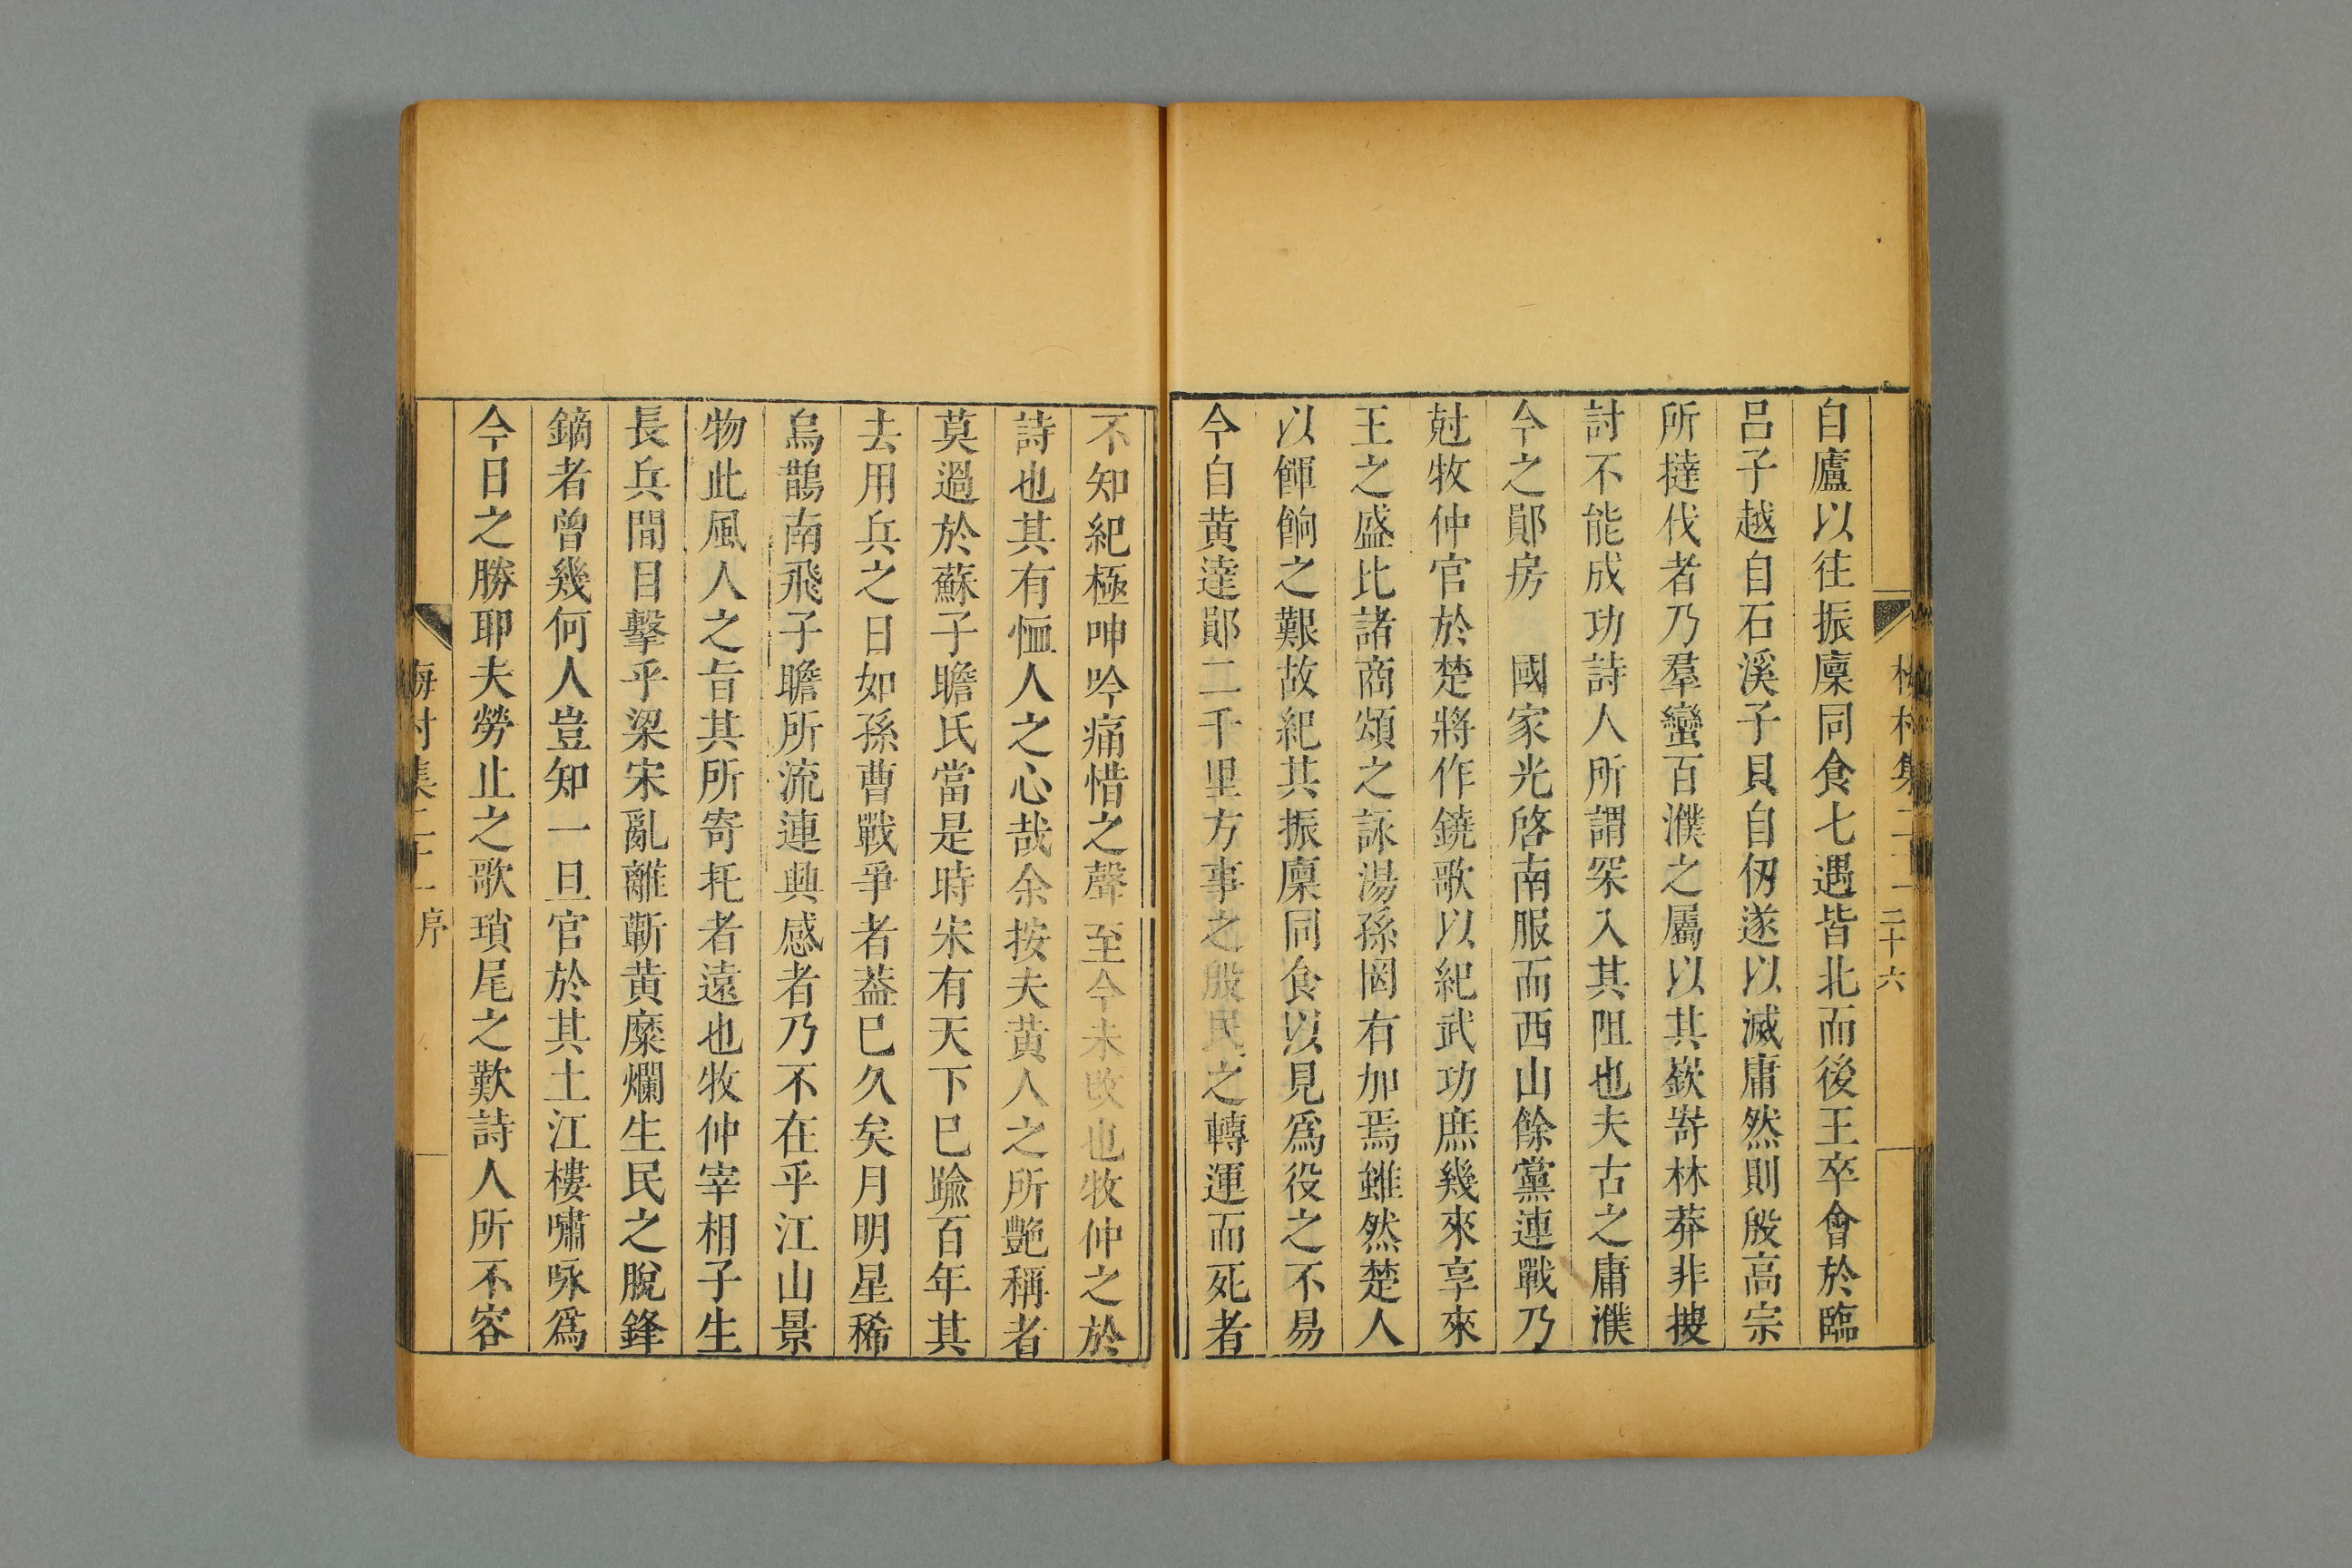 梅村集二十一 二十六
自廬以往振廩同食七遇皆北而後王卒會於臨
呂子越自石溪子貝自仭遂以滅庸然則殷高宗
所撻伐者乃羣蠻百濮之屬以其嶔嵜林莽非摟
討不能成功詩人所謂罙入其阻也夫古之庸濮
今之鄖房　國家光啓南服而西山餘黨連戰乃
尅牧仲官於楚將作鐃歌以紀武功庶幾來享來
王之盛比諸商頌之詠湯孫罔有加焉雖然楚人
以餫餉之艱故紀其振廩同食以見爲役之不易
今自黄達鄖二千里方事之殷民之轉運而死者
不知紀極呻吟痛惜之聲至今未改也牧仲之於
詩也其有恤人之心哉余按夫黄人之所艶稱者
莫過於蘇子瞻氏當是時宋有天下巳踰百年其
去用兵之日如孫曹戰爭者葢巳久矣月明星稀
烏鵲南飛子瞻所流連興感者乃不在乎江山景
物此風人之旨其所寄托者遠也牧仲宰相子生
長兵間目擊乎梁宋亂離蘄黄糜爛生民之脫鋒
鏑者曾幾何人豈知一旦官於其土江樓嘯咏爲
今日之勝耶夫勞止之歌瑣尾之歎詩人所不容
梅村集二十一 序